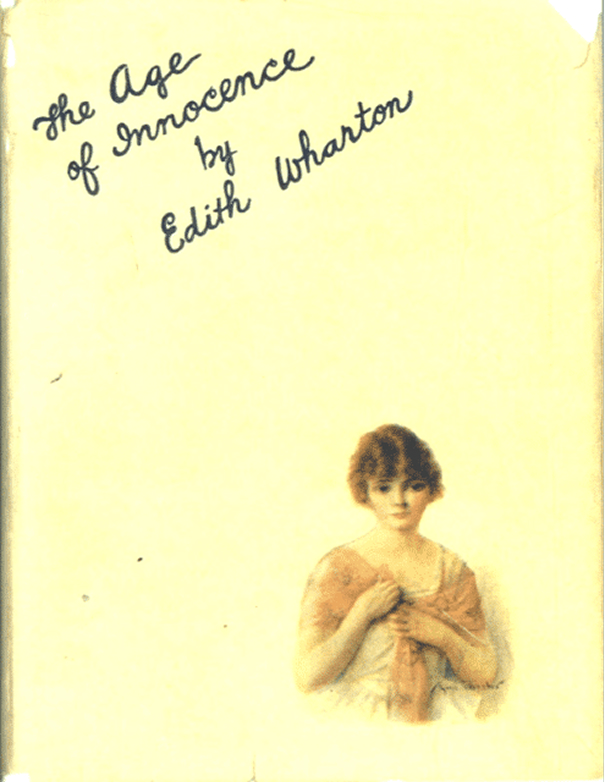 The Age
of Innocence
by
Edith Wharton